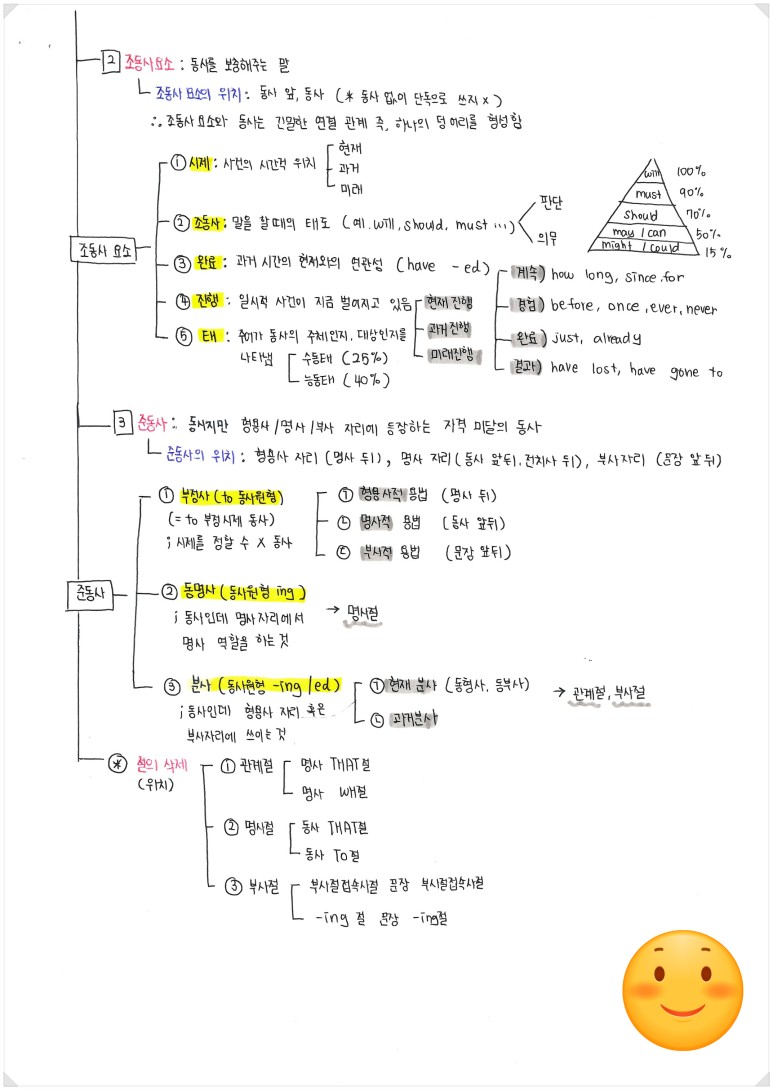 2 조동사요소 : 동사를 보충해주는 말
조동사 요소의 위치 : 동사 앞, 동사 (* 동사 없이 단독으로 쓰지 x)
∴ 조동사 요소와 동사는 긴밀한 연결 관계 즉, 하나의 덩어리를 형성함
조동사 요소
① 시제 : 사건의 시간적 위치
현재
과거
미래
② 조동사 : 말을 할 때의 태도 (예. will, should, must ...)
판단
의무
will 100%
must 90%
should 70%
may / can 50%
might / could 15%
③ 완료 : 과거 시간의 현재와의 연관성 (have -ed)
계속) how long, since, for
경험) before, once, ever, never
완료) just, already
결과) have lost, have gone to
④ 진행 : 일시적 사건이 지금 벌어지고 있음
현재진행
과거진행
미래진행
⑤ 태 : 주어가 동사의 주체인지, 대상인지를
나타냄
수동태 (25%)
능동태 (40%)
3 준동사 : 동사지만 형용사/명사/부사 자리에 등장하는 자격 미달의 동사
준동사의 위치 : 형용사 자리 (명사 뒤), 명사 자리 (동사 앞뒤, 전치사 뒤), 부사자리 (문장 앞뒤)
준동사
① 부정사 (to 동사원형)
(= to 부정시제 동사)
; 시제를 정할 수 X 동사
㉠ 형용사적 용법 (명사 뒤)
㉡ 명사적 용법 (동사 앞뒤)
㉢ 부사적 용법 (문장 앞뒤)
② 동명사 (동사원형 ing)
; 동사인데 명사자리에서
명사 역할을 하는 것
→ 명사절
③ 분사 (동사원형 -ing /ed)
; 동사인데 형용사 자리 혹은
부사자리에 쓰이는 것
㉠ 현재 분사 (동형사, 동부사)
㉡ 과거분사
→ 관계절, 부사절
* 절의 삭제
(위치)
① 관계절
명사 THAT절
명사 WH절
② 명사절
동사 THAT절
동사 TO절
③ 부사절
부사절접속사절 문장 부사절접속사절
-ing 절 문장 -ing절